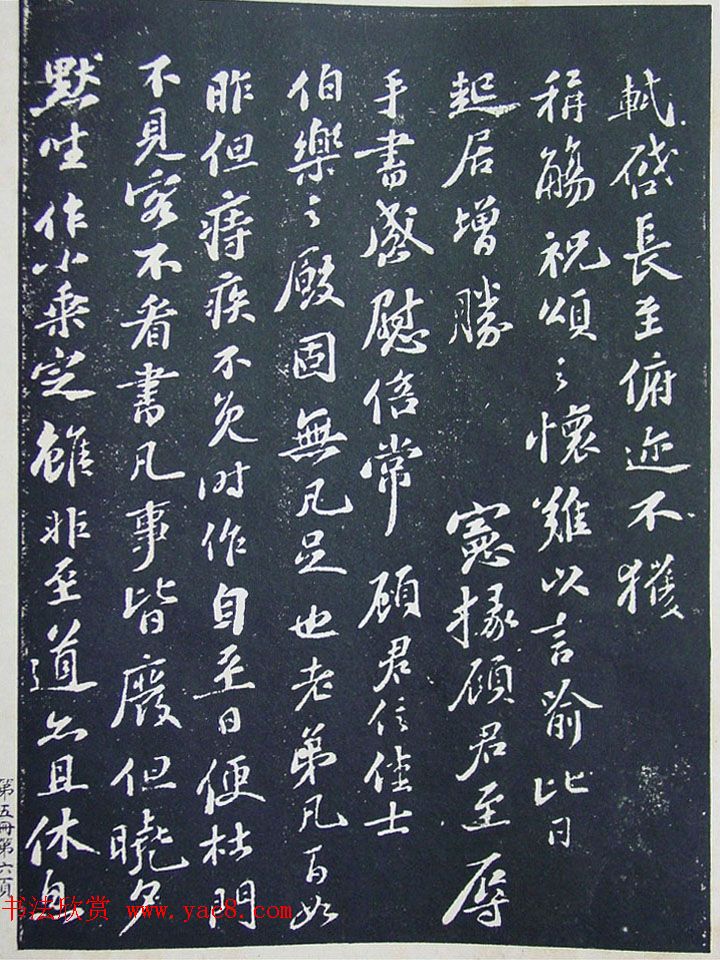 軾啓長至俯迩不獲
稱觴祝頌之懷難以言喻比日
起居增勝 憲掾顧君至辱
手書感慰倍常顧君信佳士
伯樂之廄固無凡足也老弟凡百如
昨但痔疾不免时作自至日便杜門
不見客不看書凡事皆廢但曉夕
默坐作小乘定雖非至道亦且休息
第五冊第六頁
书法欣赏 www.yac8.com